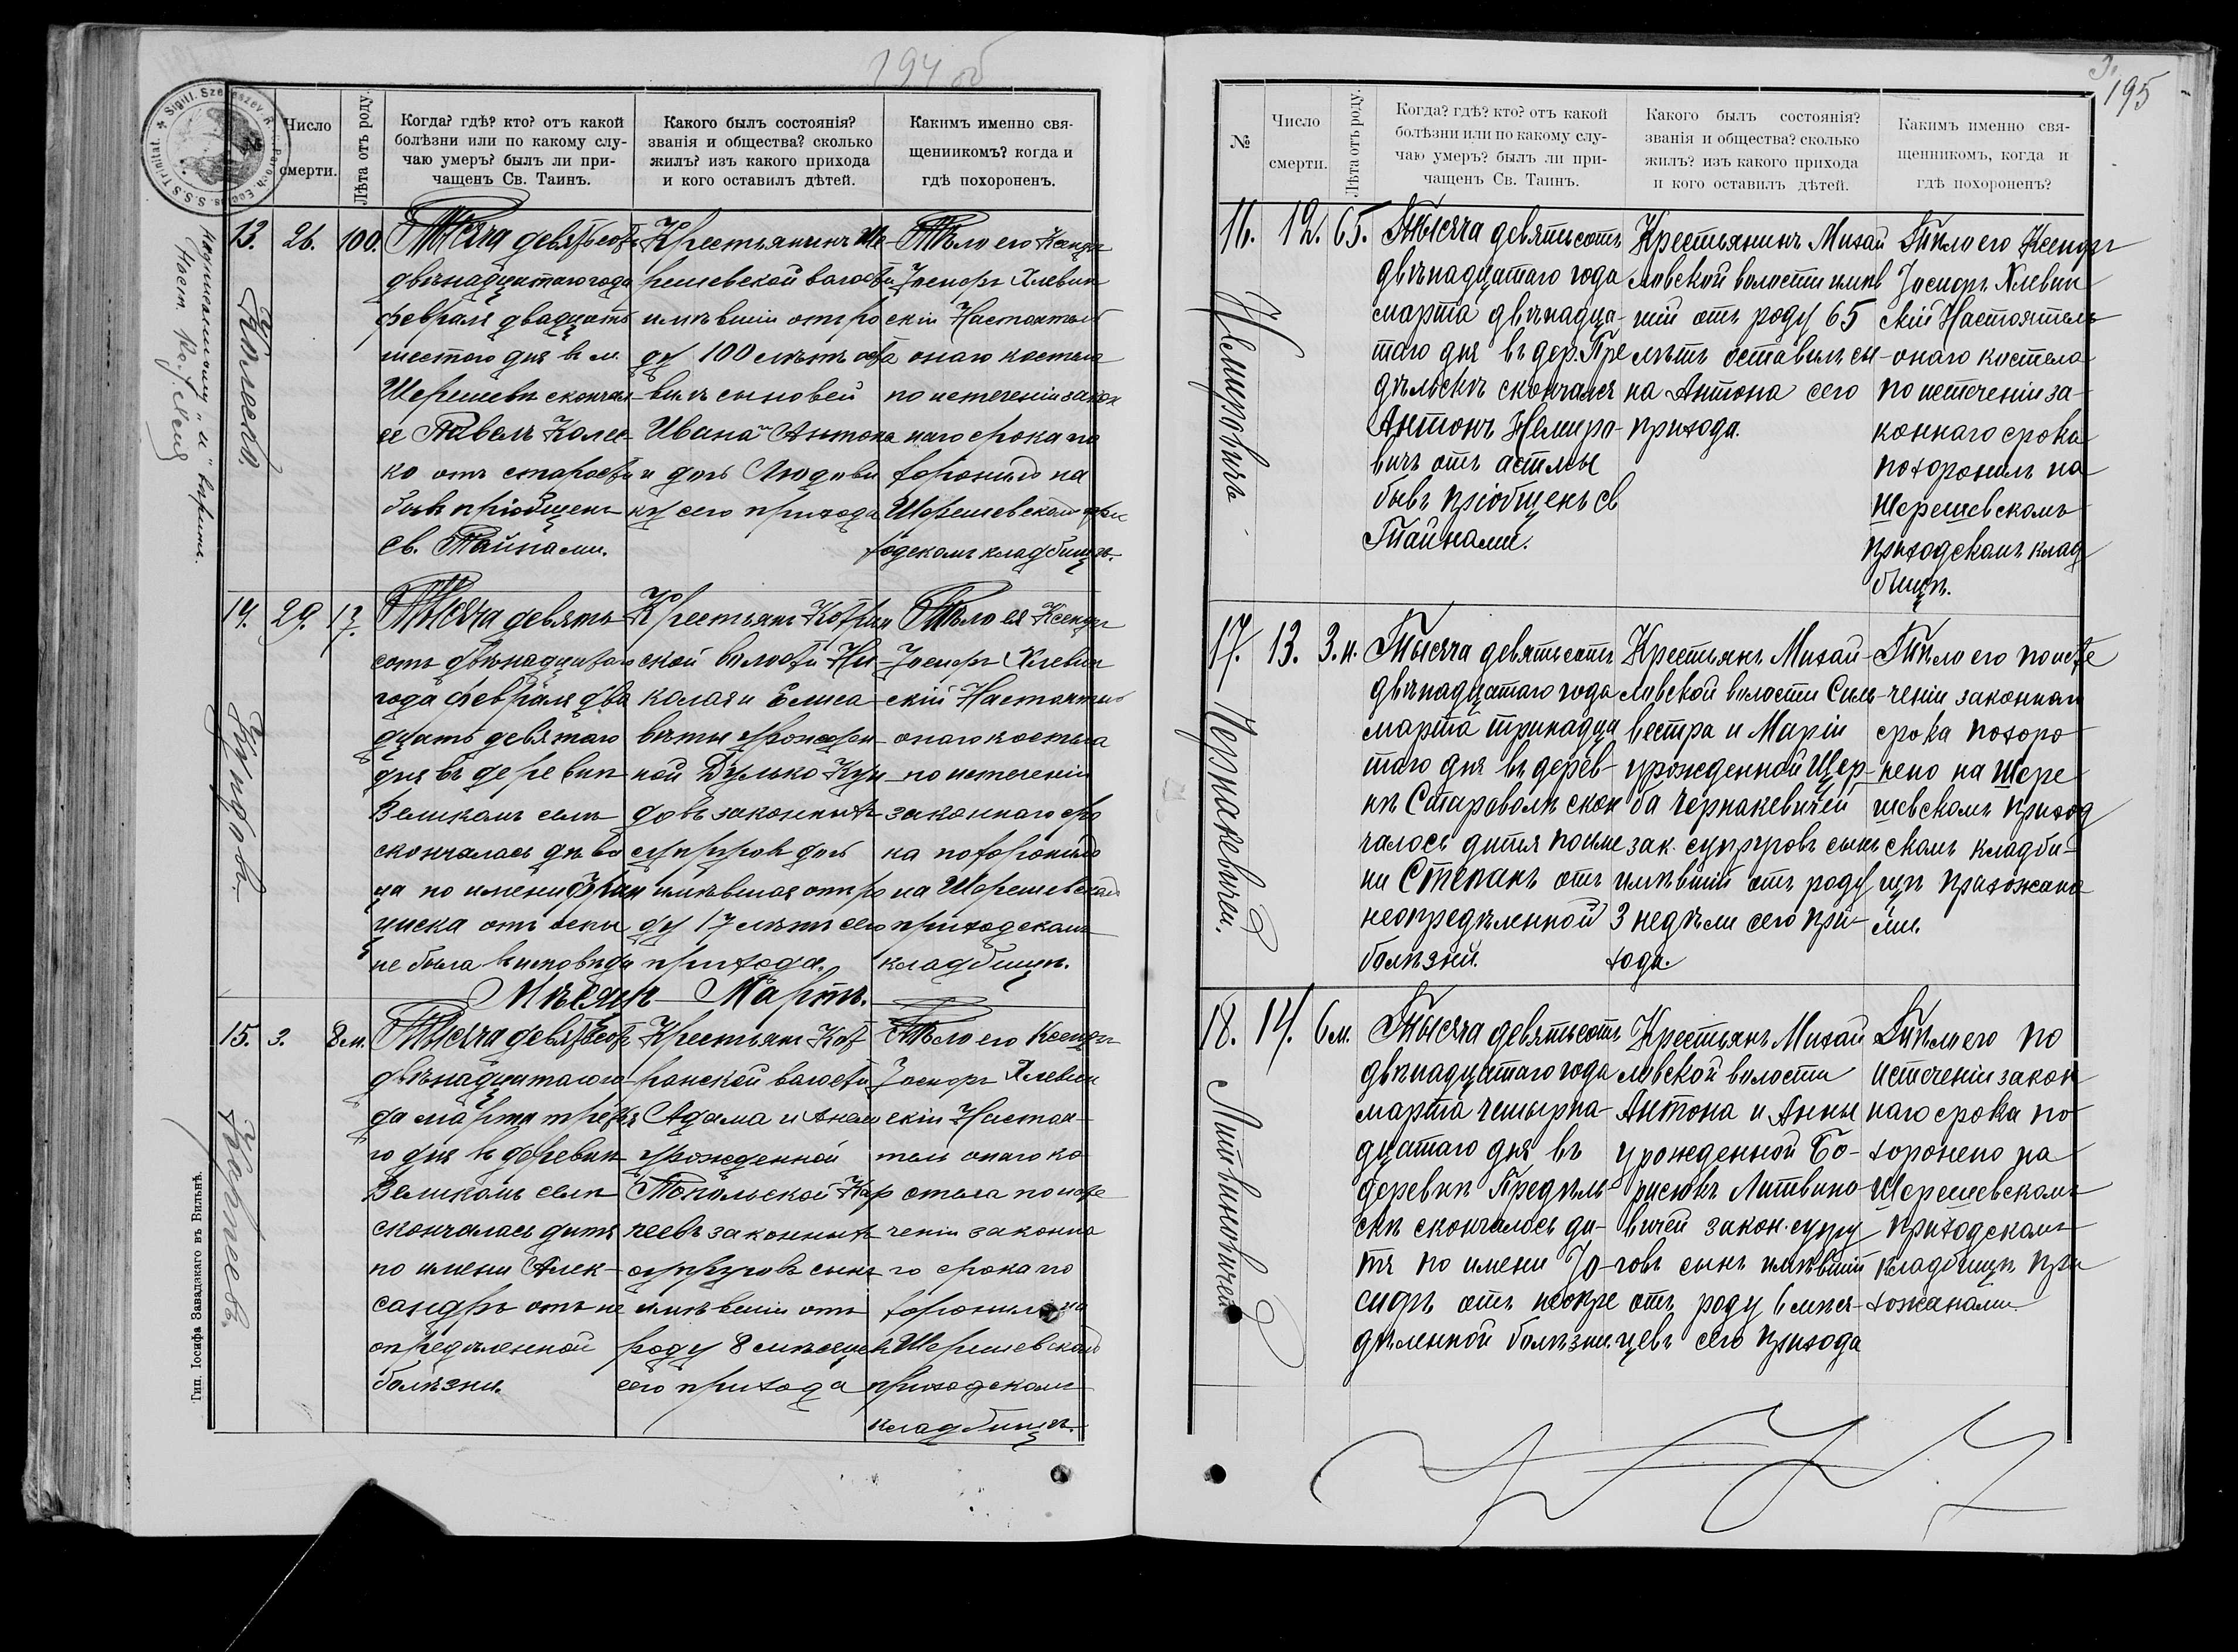 194 об
Sigill. Szereszev. R. Paroch. Eccl. S.S. Trinitat.
Число смерти.
Лѣта отъ роду.
Когда? гдѣ? кто? отъ какой
болѣзни или по какому слу-
чаю умеръ? былъ ли при-
чащенъ Св. Таинъ.
Какого былъ состоянія?
званія и общества? сколько
жилъ? изъ какого прихода
и кого оставилъ дѣтей.
Какимъ именно свя-
щенникомъ? когда и
гдѣ похороненъ.
Колеско.
13. 26. 100.
Тысяча девятьсотъ
двѣнадцатаго года
февраля двадцать
шестого дня в м.
Шерешевѣ сконча
ся Павелъ Колес
ко отъ старости
бывъ пріобщенъ
Св. Тайнами.
Крестьянинъ Ше
решевской волости
имѣвшій отъ ро
ду 100 лѣтъ оста
вилъ сыновей
Ивана и Антона
и дочь Людови
ку сего прихода
Тѣло его Ксендзъ
Іосифъ Хлевин
скій Настоятель
онаго костела
по истеченіи закон
наго срока по
хоронилъ на
Шерешевскомъ при
ходскомъ кладбищѣ.
14. 29. 17.
Тысяча девять
сотъ двѣнадцатаго
года февраля два
дцать девятаго
дня въ деревнѣ
Великомъ селѣ
скончалась дѣви
ца по имени Фран
циска отъ оспы
не была в исповѣди
Крестьянъ Котран
ской волости Ни
колая и Елиса
веты урожден
ной Дулько Кун
довъ законныхъ
супруговъ дочь
имѣвшая отъ ро
ду 17 лѣтъ сего
прихода.
Тѣло ея Ксендзъ
Іосифъ Хлевин
скій Настоятель
онаго костела
по истеченіи
законнаго сро
ка похоронилъ
на Шерешевскомъ
приходскомъ
кладбищѣ.
Мѣсяцъ Мартъ.
15. 3. 8 м.
Тысяча девятьсотъ
двѣнадцатаго го
да марта третья
го дня в деревнѣ
Великомъ селѣ
скончалось дитя
по имени Алек-
сандръ отъ не
опредѣленной
болѣзни.
Крестьянъ Кот
ранской волости
Адама и Анны
урожденной
Токольской Кар
псевъ законныхъ
супруговъ сынъ
имѣвшій отъ
роду 8 мѣсяцев
сего прихода
Тѣло его Ксендзъ
Іосифъ Хлевин
скій Настоя-
тель онаго ко
стела по исте
ченіи законна
го срока по
хоронилъ на
Шерешевскомъ
приходскомъ
кладбищѣ.
Тип. Іосифа Завадзкаго въ Вильнѣ.
195
№
Число
смерти.
Лѣта отъ роду.
Когда? гдѣ? кто? отъ какой
болѣзни или по какому слу-
чаю умеръ? былъ ли при-
чащенъ Св. Таинъ.
Какого былъ состоянія?
званія и общества? сколько
жилъ? изъ какого прихода
и кого оставилъ дѣтей.
Какимъ именно свя-
щенникомъ, когда и
гдѣ похороненъ?
16. 12. 65.
Немировичъ
Тысяча девятьсотъ
двѣнадцатаго года
марта двѣнадца-
таго дня въ дер. Пре
дѣльскѣ скончался
Антонъ Немиро-
вичъ отъ астмы
бывъ пріобщенъ св
Тайнами.
Крестьянинъ Михай
ловской волости имѣв
шій отъ роду 65
лѣтъ оставилъ сы-
на Антона сего
прихода.
Тѣло его Ксендзъ
Іосифъ Хлевин
скій Настоятель
онаго костела
по истеченіи за-
коннаго срока
похоронилъ на
Шерешевскомъ
приходскомъ клад
бищѣ.
17. 13. 3. н.
Чернакевичей.
Тысяча девятьсотъ
двѣнадцатаго года
марта тринадца
таго дня въ дерев-
нѣ Староволѣ скон
чалось дитя по име
ни Степанъ отъ
неопредѣленной
болѣзни.
Крестьянъ Михай-
ловской волости Силь-
вестра и Маріи
урожденной Щер-
ба Чернакевичей
зак. супруговъ сынъ
имѣвшій отъ роду
3 недѣли сего при-
хода.
Тѣло его по исте
ченіи законнаго
срока похоро
нено на Шере
шевскомъ приход
скомъ кладби-
щѣ прихожана
ми.
18. 14. 6 м.
Литвиновичей
Тысяча девятьсотъ
двѣнадцатаго года
марта четырна-
дцатаго дня въ
деревнѣ Предѣль-
скѣ скончалось ди-
тя по имени Іо-
сифъ отъ неопре
дѣленной болѣзни.
Крестьянъ Михай
ловской волости
Антона и Анны
урожденной Бо-
рисюкъ Литвино-
вичей закон. супру
говъ сынъ имѣвшій
отъ роду 6 мѣся-
цевъ сего прихода
Тѣло его по
истеченіи закон
наго срока по
хоронено на
Шерешевскомъ
приходскомъ
кладбищѣ при
хожанами